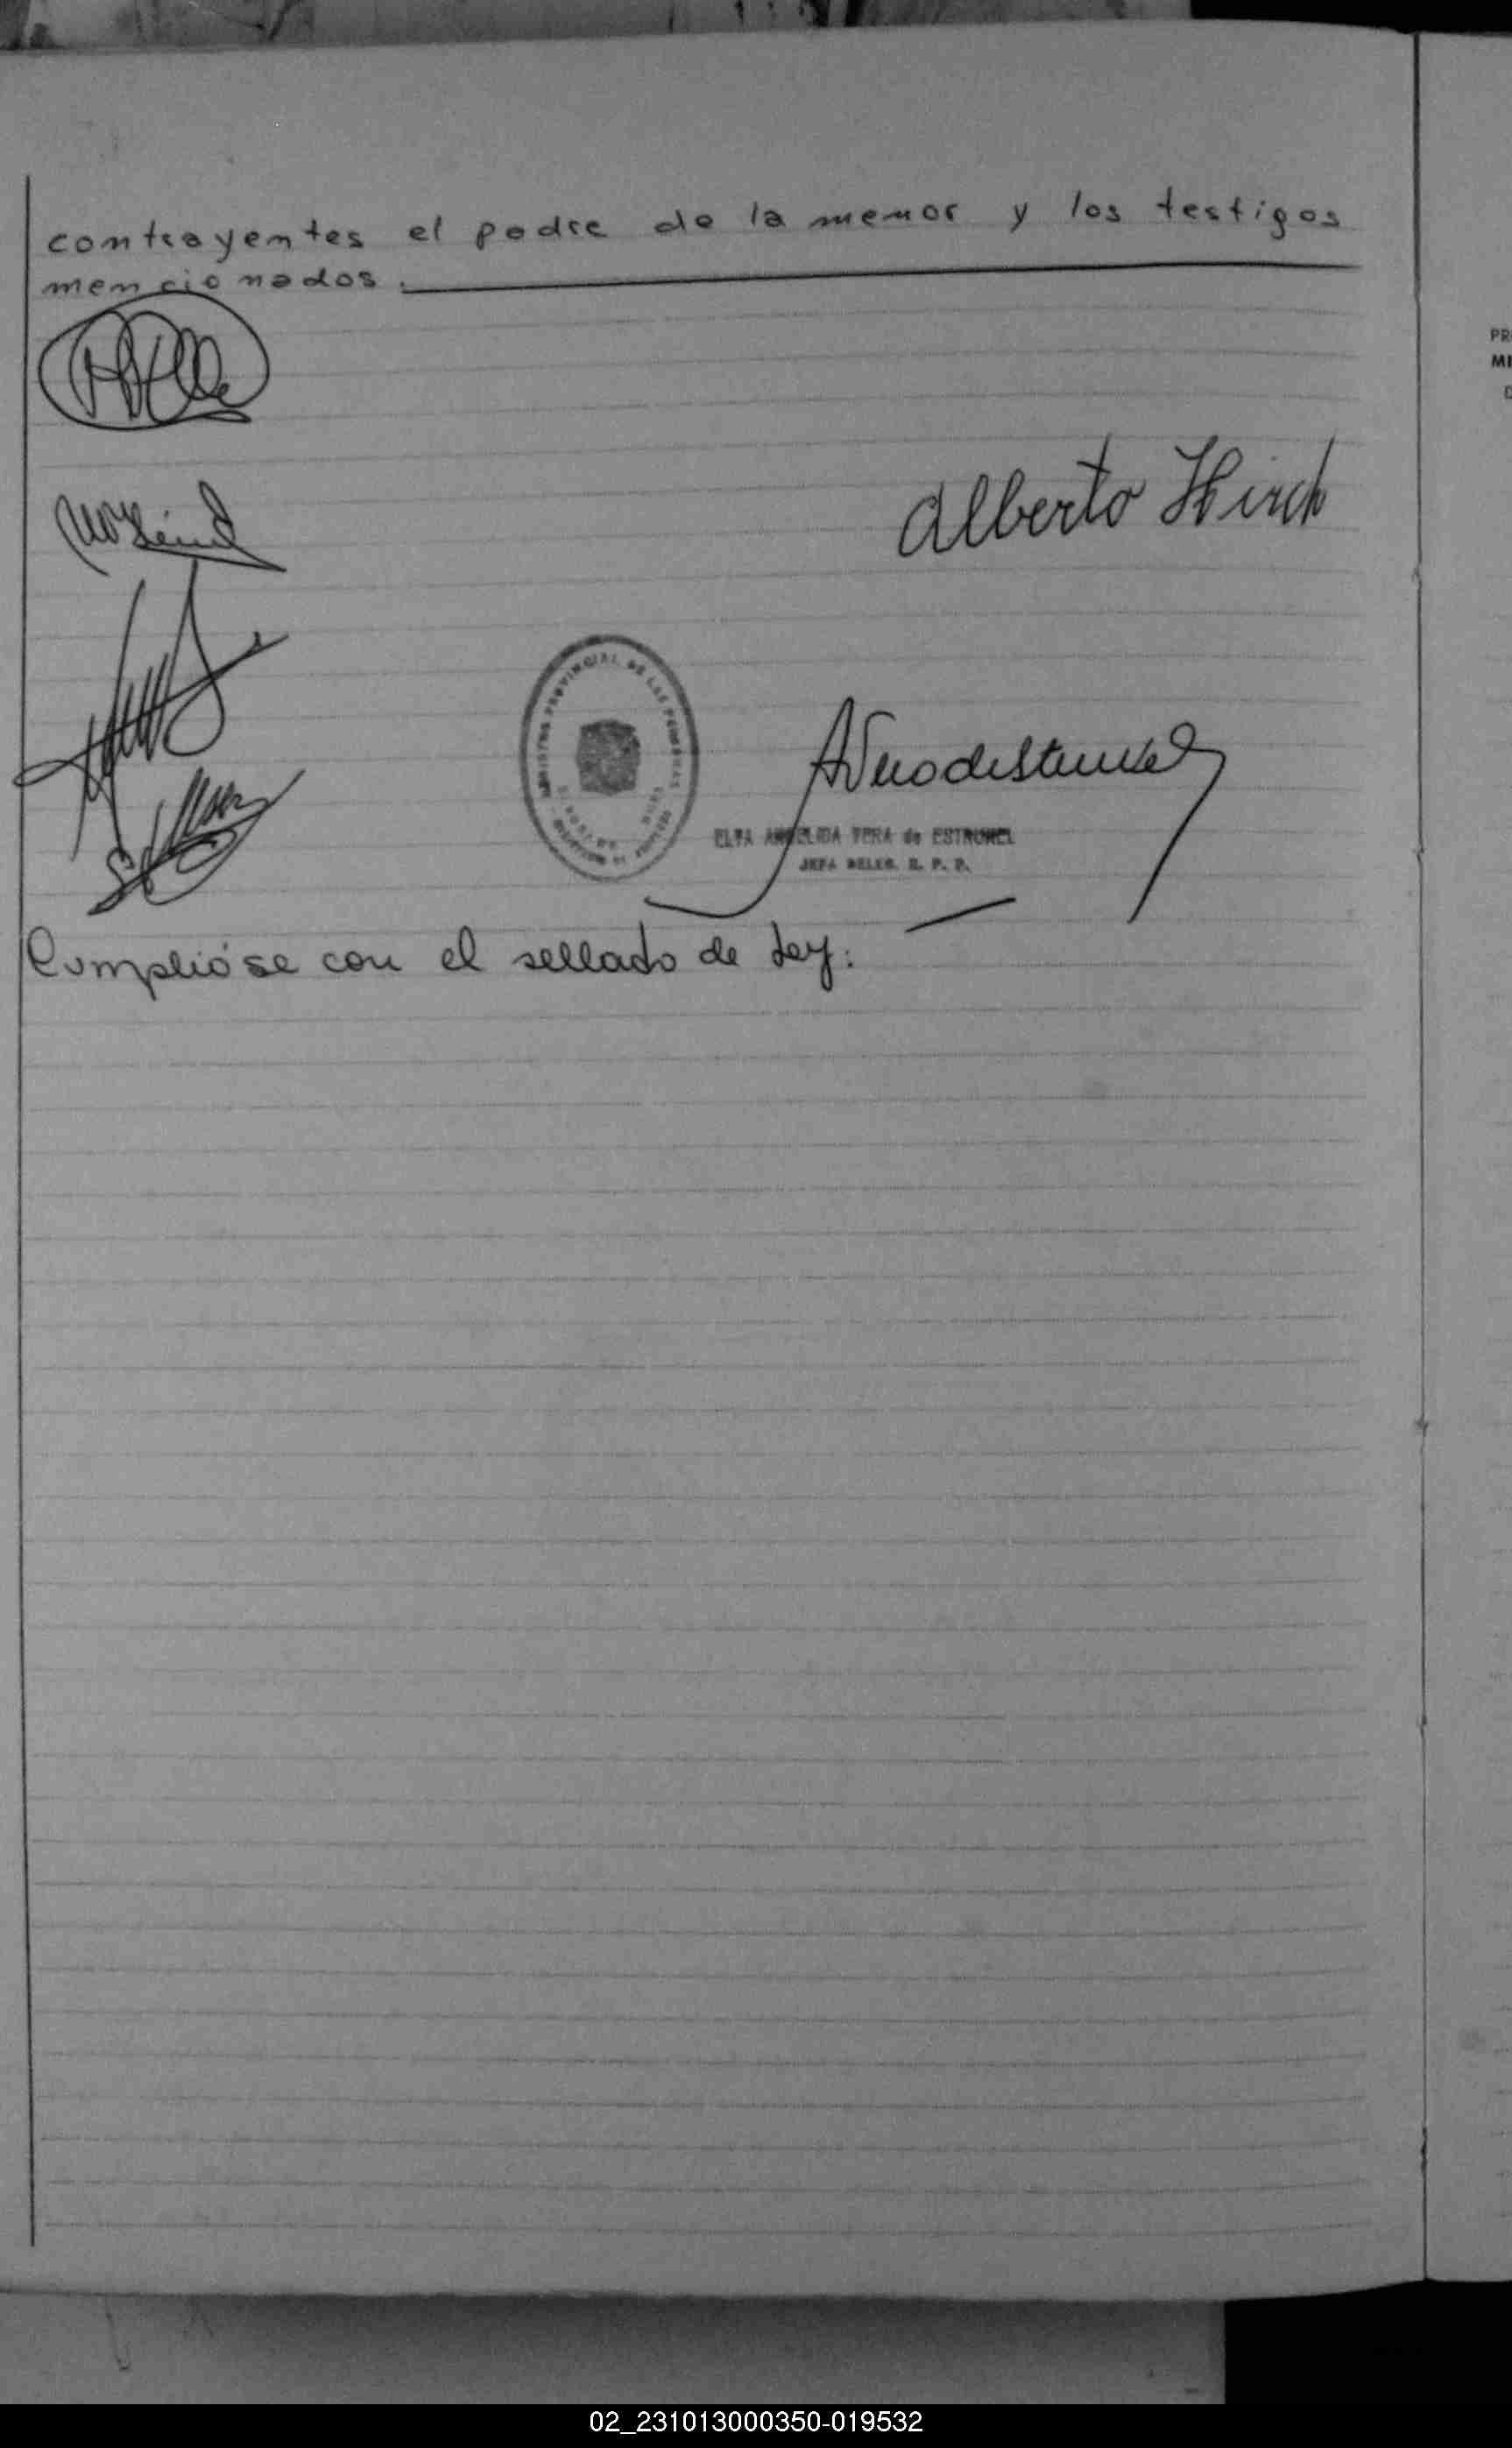 contrayentes el padre de la menor y los testigos
mencionados.
Alberto Hirch
REGISTRO PROVINCIAL DE LAS PERSONAS
ELVA ANGELICA VERA de ESTRUNEL
JEFA DELEG. R. P. P.
Cumplióse con el sellado de Ley:
PR
MI
02_231013000350-019532